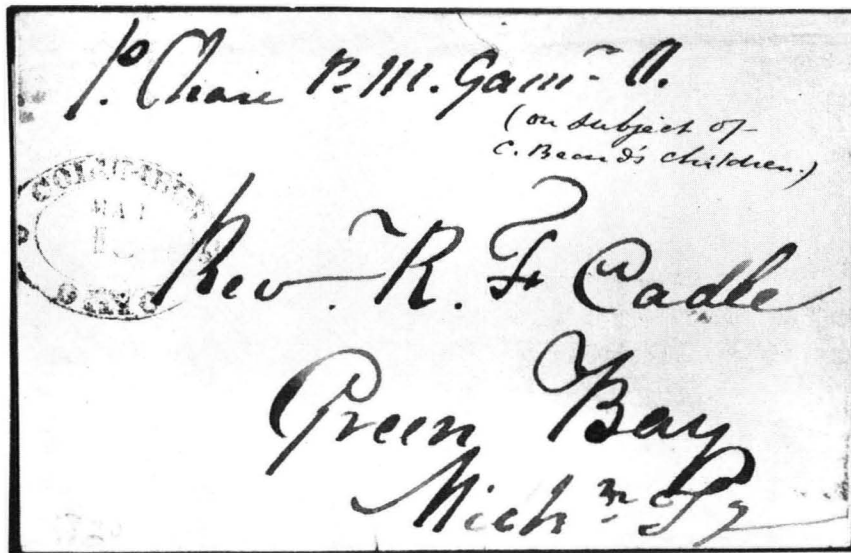 P. Chase P.M. Gamr. O.
(on subject of
C. Beard's children.)
COLUMBUS
MAY
OHIO
Revr. R. F. Cadle
Green Bay
Michn. Ty